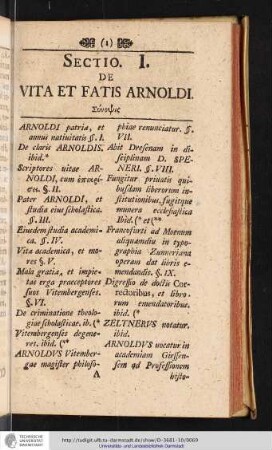 (1)
SECTIO. I.
DE
VITA ET FATIS ARNOLDI.
Σύνοψις
ARNOLDI patria, et
annus natiuitatis §. I.
De claris ARNOLDIS.
ibid.*
Scriptores uitae AR-
NOLDI, cum
§. II.
Pater ARNOLDI, et
studia eius scholastica.
§. III.
Eiusdem studia academi-
ca. §. IV.
Vita academica, et mo-
res §. V.
Mala gratia, et impie-
tas erga praeceptores
suos Vitembergenses.
§. VI.
De criminatione theolo-
giae scholasticae. ib. (*
Vitembergenses degene-
res. ibid. (**
ARNOLDVS Vitember-
gae magister philoso-
A
phiae renunciatur. §.
VII.
Abit Dresenam in di-
sciplinam D. SPE-
NERI. §. VIII.
Fungitur priuatis qui-
busdam liberorum in-
stitutionibus, fugitque
munera ecclesiastica
ibid. (* et (**
Francofurti ad Moenum
aliquamdiu in typogra-
phia Zunneriana
operam dat libris e-
mendandis. §. IX.
Digressio de doctis Cor-
rectoribus, et libro-
rum emendatoribus.
ibid. (*
ZELTNERVS notatur.
ibid.
ARNOLDVS uocatur in
academiam Giessen-
sem ad Professionem
histo-
TECHNISCHE
UNIVERSITÄT
DARMSTADT
http://tudigit.ulb.tu-darmstadt.de/show/O-3681-10/0009
Universitäts- und Landesbibliothek Darmstadt